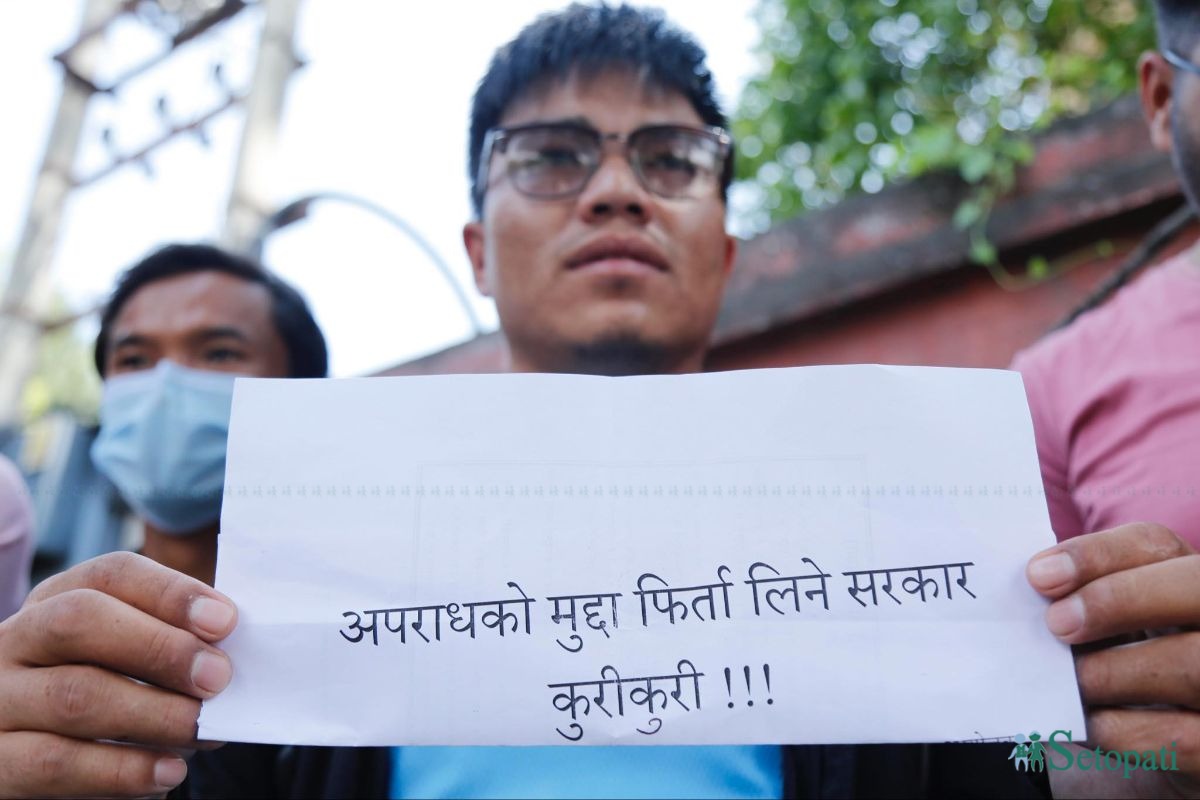 अपराधको मुद्दा फिर्ता लिने सरकार
कुरीकुरी !!!
Setopati